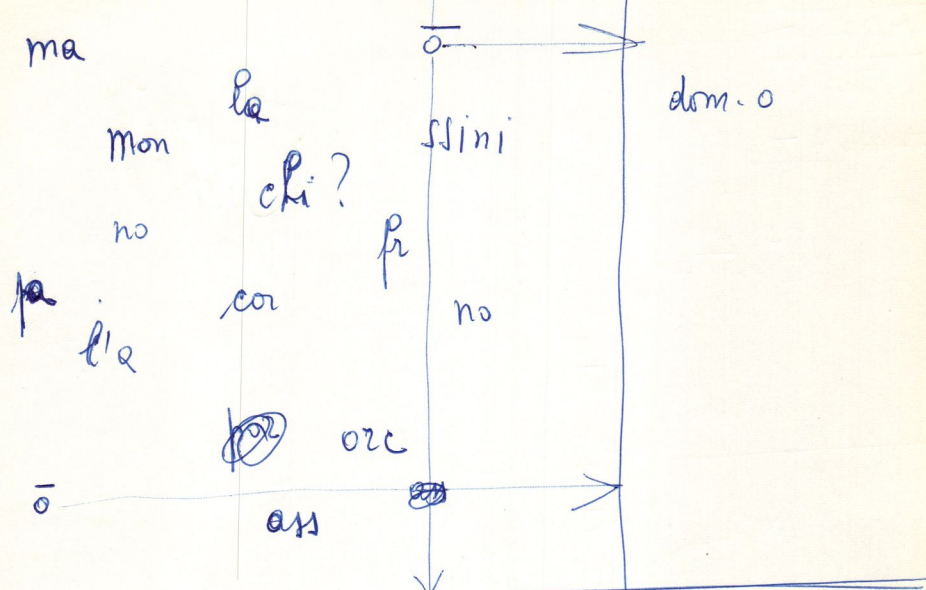 ma
ō
la
dom. o
mon
ssini
chi?
no
fr
pa
cor
no
l'a
orc
ō
ass